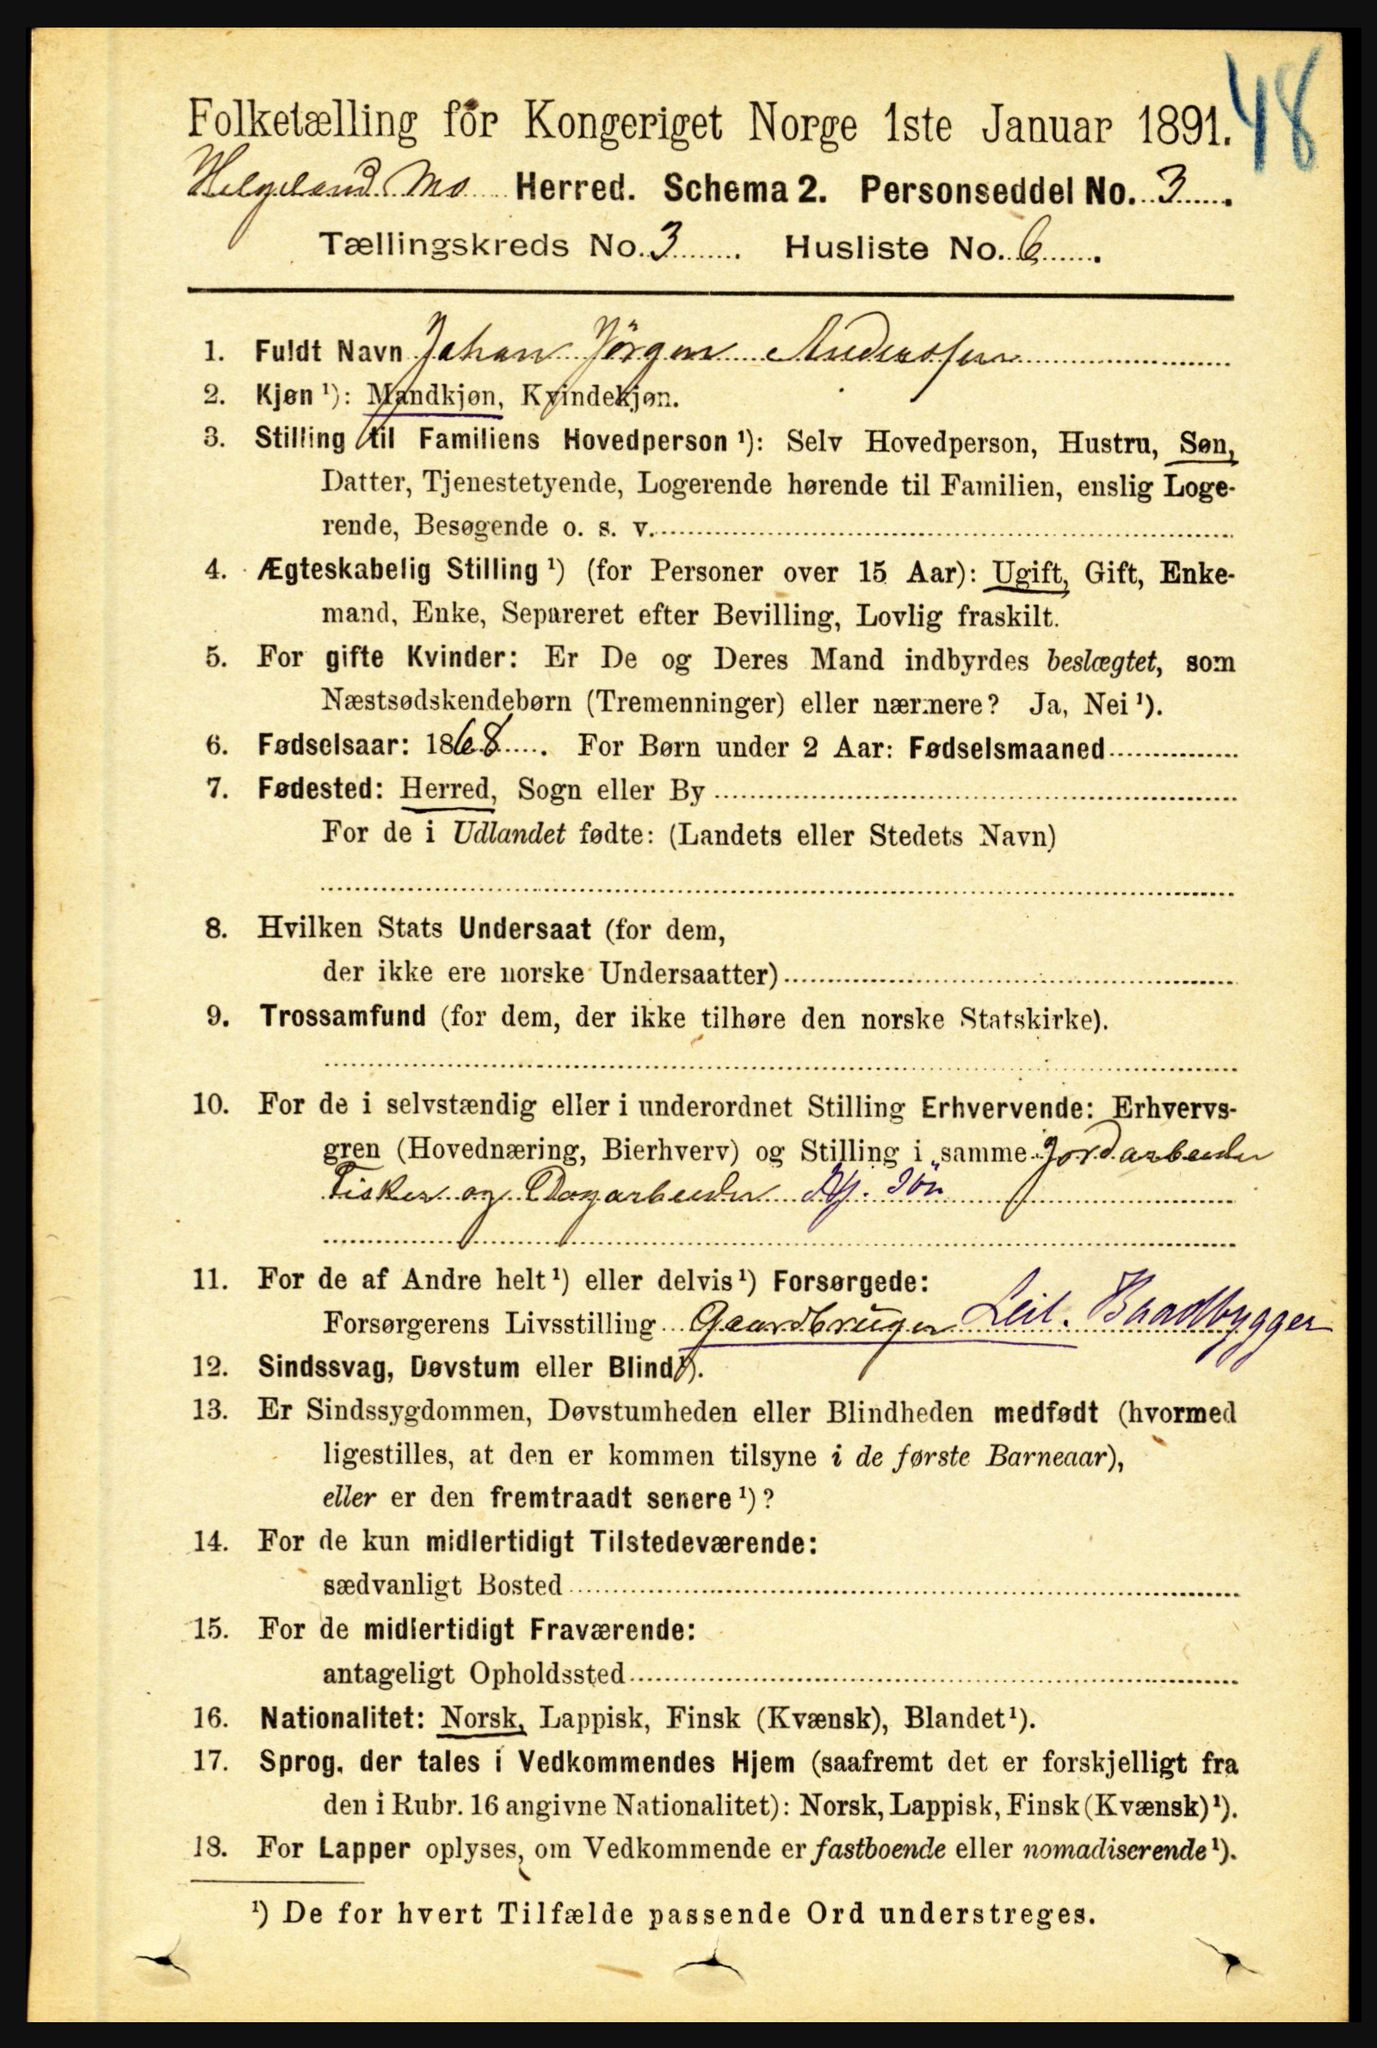 48
Folketælling for Kongeriget Norge 1ste Januar 1891.
Helgeland Mo Herred. Schema 2. Personseddel No. 3.
Tællingskreds No. 3. Husliste No. 6.
1. Fuldt Navn Johan Jörgen Anderssen
2. Kjøn ¹): Mandkjøn, Kvindekjøn.
3. Stilling til Familiens Hovedperson ¹): Selv Hovedperson, Hustru, Søn,
Datter, Tjenestetyende, Logerende hørende til Familien, enslig Loge-
rende, Besøgende o. s. v.
4. Ægteskabelig Stilling ¹) (for Personer over 15 Aar): Ugift, Gift, Enke-
mand, Enke, Separeret efter Bevilling, Lovlig fraskilt.
5. For gifte Kvinder: Er De og Deres Mand indbyrdes beslægtet, som
Næstsødskendebørn (Tremenninger) eller nærmere? Ja, Nei ¹).
6. Fødselsaar: 1868. For Børn under 2 Aar: Fødselsmaaned
7. Fødested: Herred, Sogn eller By
For de i Udlandet fødte: (Landets eller Stedets Navn)
8. Hvilken Stats Undersaat (for dem,
der ikke ere norske Undersaatter)
9. Trossamfund (for dem, der ikke tilhøre den norske Statskirke).
10. For de i selvstændig eller i underordnet Stilling Erhvervende: Erhvervs-
gren (Hovednæring, Bierhverv) og Stilling i samme Jordarbeider
Fisker og Dagarbeider Sön
11. For de af Andre helt ¹) eller delvis ¹) Forsørgede:
Forsørgerens Livsstilling Gaardbruger Leil. Baadbygger
12. Sindssvag, Døvstum eller Blind ¹).
13. Er Sindssygdommen, Døvstumheden eller Blindheden medfødt (hvormed
ligestilles, at den er kommen tilsyne i de første Barneaar),
eller er den fremtraadt senere ¹)?
14. For de kun midlertidigt Tilstedeværende:
sædvanligt Bosted
15. For de midlertidigt Fraværende:
antageligt Opholdssted
16. Nationalitet: Norsk, Lappisk, Finsk (Kvænsk), Blandet ¹).
17. Sprog, der tales i Vedkommendes Hjem (saafremt det er forskjelligt fra
den i Rubr. 16 angivne Nationalitet): Norsk, Lappisk, Finsk (Kvænsk) ¹).
18. For Lapper oplyses, om Vedkommende er fastboende eller nomadiserende ¹).
¹) De for hvert Tilfælde passende Ord understreges.